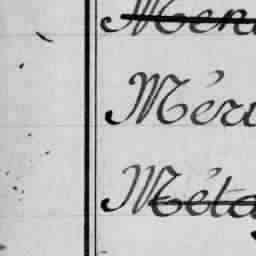 Meri
Méri
Méta